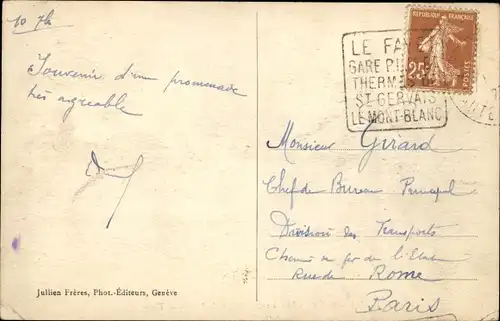 Souvenir d'une promenade
très agréable
Jullien Frères, Phot.-Éditeurs, Genève
LE FAY
GARE P
THERM
ST GERVAIS
LE MONT-BLANC
REPUBLIQUE FRANÇAISE
25c
POSTES
Monsieur Girard
Chef de Bureau Principal
Division des Transports
Chemins de fer de l'Etat
Rue de Rome
Paris